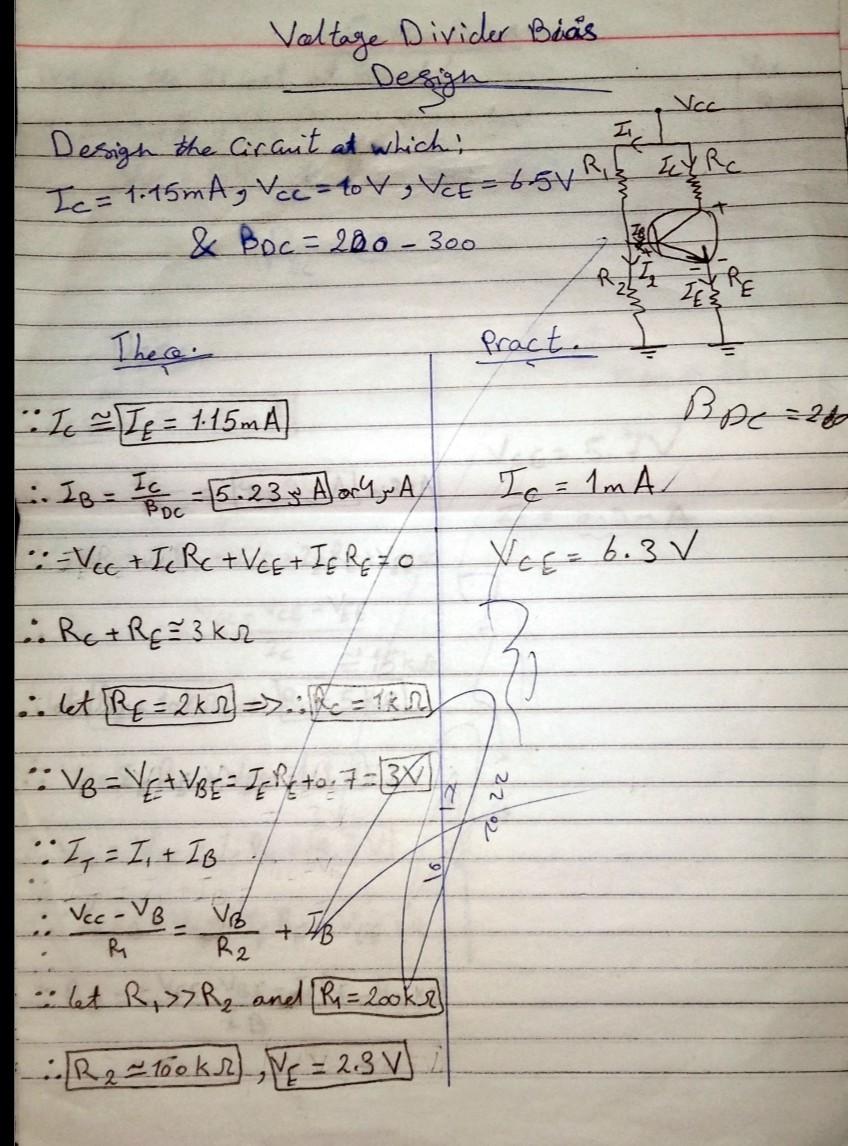 Voltage Divider Bias
Design
Design the Circuit at which:
I_C = 1.15mA, V_CC = 10V, V_CE = 6.5V
& B_DC = 200 - 300
V_CC
I_1
R_1
I_C
R_C
+
I_B
+
R_2
I_2
-
-
I_E
R_E
Theo.
∵ I_C ≅ I_E = 1.15mA
∴ I_B = I_C/β_DC = 5.23 μA or 4 μA
∵ -V_CC + I_C R_C + V_CE + I_E R_E = 0
∴ R_C + R_E ≅ 3 kΩ
∴ let R_E = 2kΩ => ∴ R_C = 1kΩ
∵ V_B = V_E + V_BE = I_E R_E + 0.7 = 3V
∵ I_T = I_1 + I_B
∴ (V_CC - V_B)/R_1 = V_B/R_2 + I_B
∵ let R_1 >> R_2 and R_1 = 200kΩ
∴ R_2 ≃ 100kΩ, V_E = 2.3V
Pract.
B_DC =
I_C = 1mA
V_CE = 6.3 V